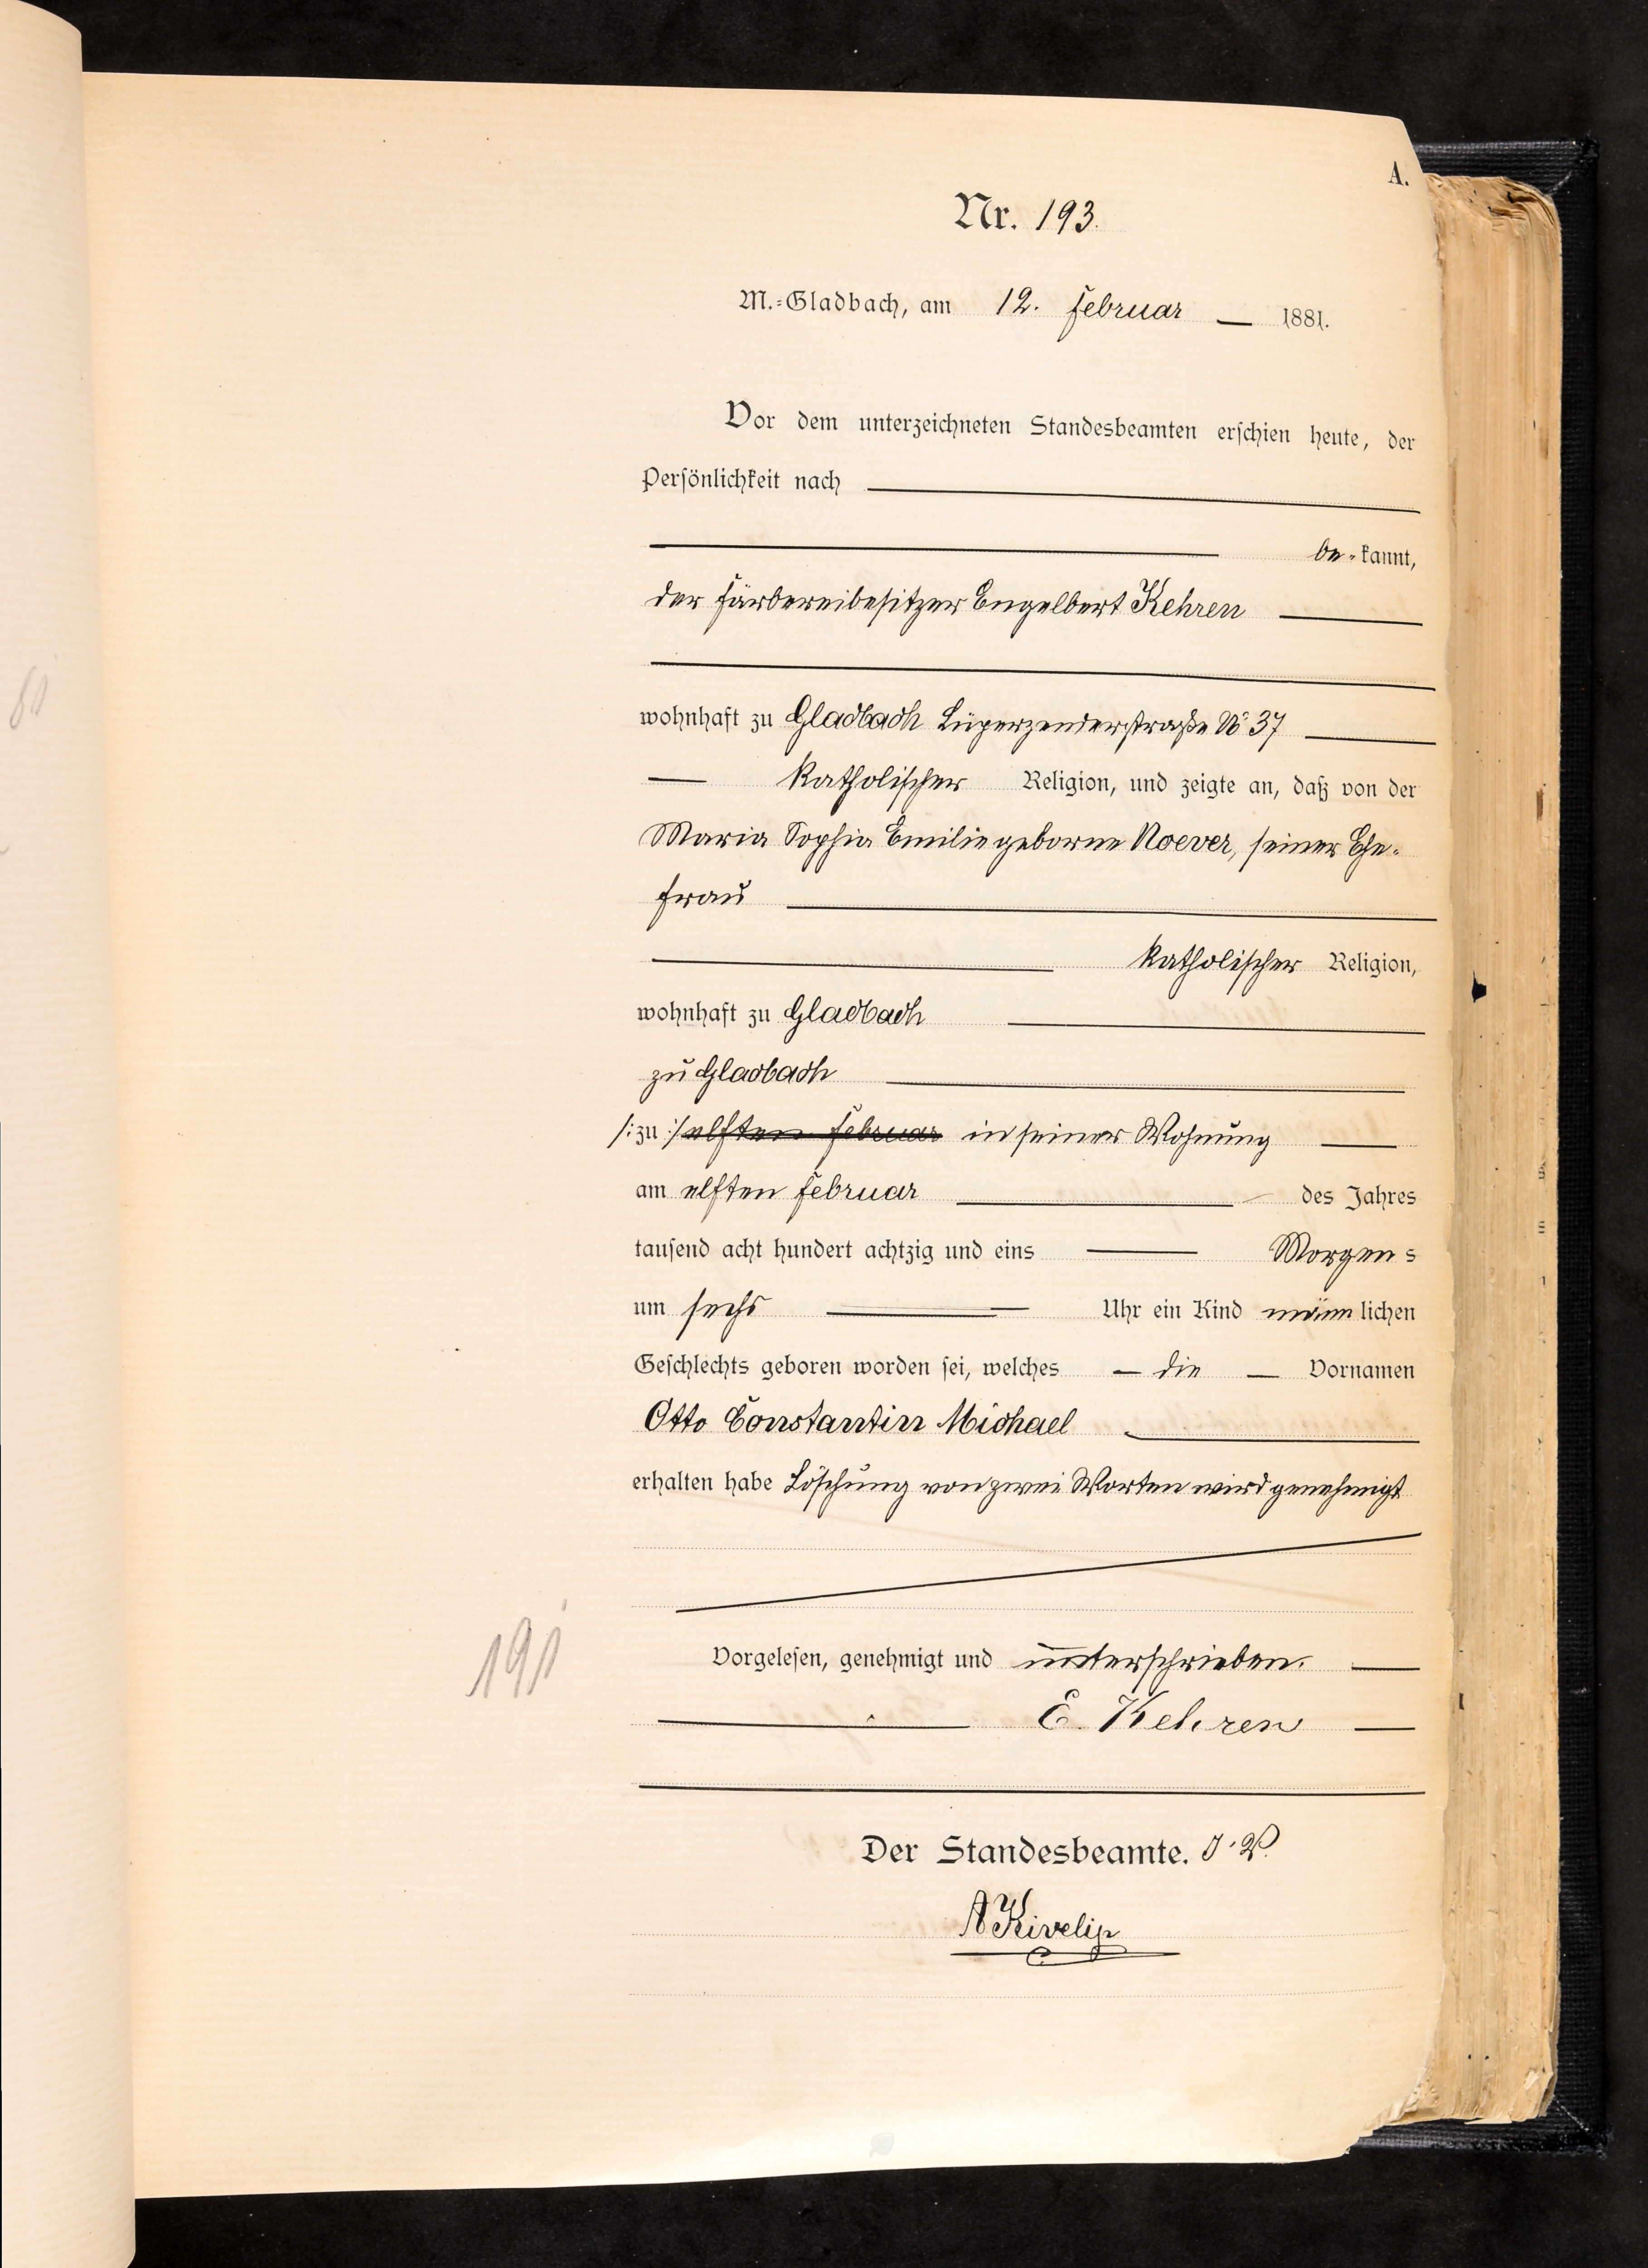 A.
Nr. 193.
M.-Gladbach, am 12. Februar — 1881.
Vor dem unterzeichneten Standesbeamten erschien heute, der
Persönlichkeit nach
be-kannt,
der Färbereibesitzer Engelbert Kehren
wohnhaft zu Gladbach Lüperzenderstraße No 37
katholischer Religion, und zeigte an, daß von der
Maria Sophia Emilie geborne Noever, seiner Ehe-
frau
katholischer Religion,
wohnhaft zu Gladbach
zu Gladbach
/: zu :/ elften Februar in seiner Wohnung
am elften Februar des Jahres
tausend acht hundert achtzig und eins Morgens
um sechs Uhr ein Kind männlichen
Geschlechts geboren worden sei, welches — die — Vornamen
Otto Constantin Michael
erhalten habe Löschung von zwei Worten wird genehmigt
191
Vorgelesen, genehmigt und unterschrieben.
E. Kehren
Der Standesbeamte. J. V.
A Kivelip